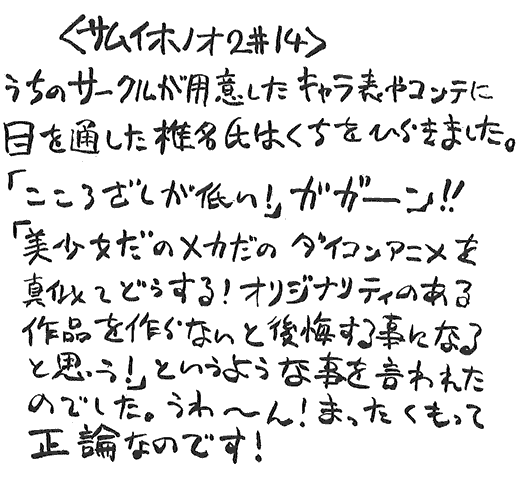 <サムイホノオ2#14>
うちのサークルが用意したキャラ表やコンテに
目を通した椎名氏はくちをひらきました。
「こころざしが低い!」ガガーン!!
「美少女だのメカだのダイコンアニメを
真似てどうする!オリジナリティのある
作品を作らないと後悔する事になる
と思う!」というような事を言われた
のでした。うわ〜ん!まったくもって
正論なのです!